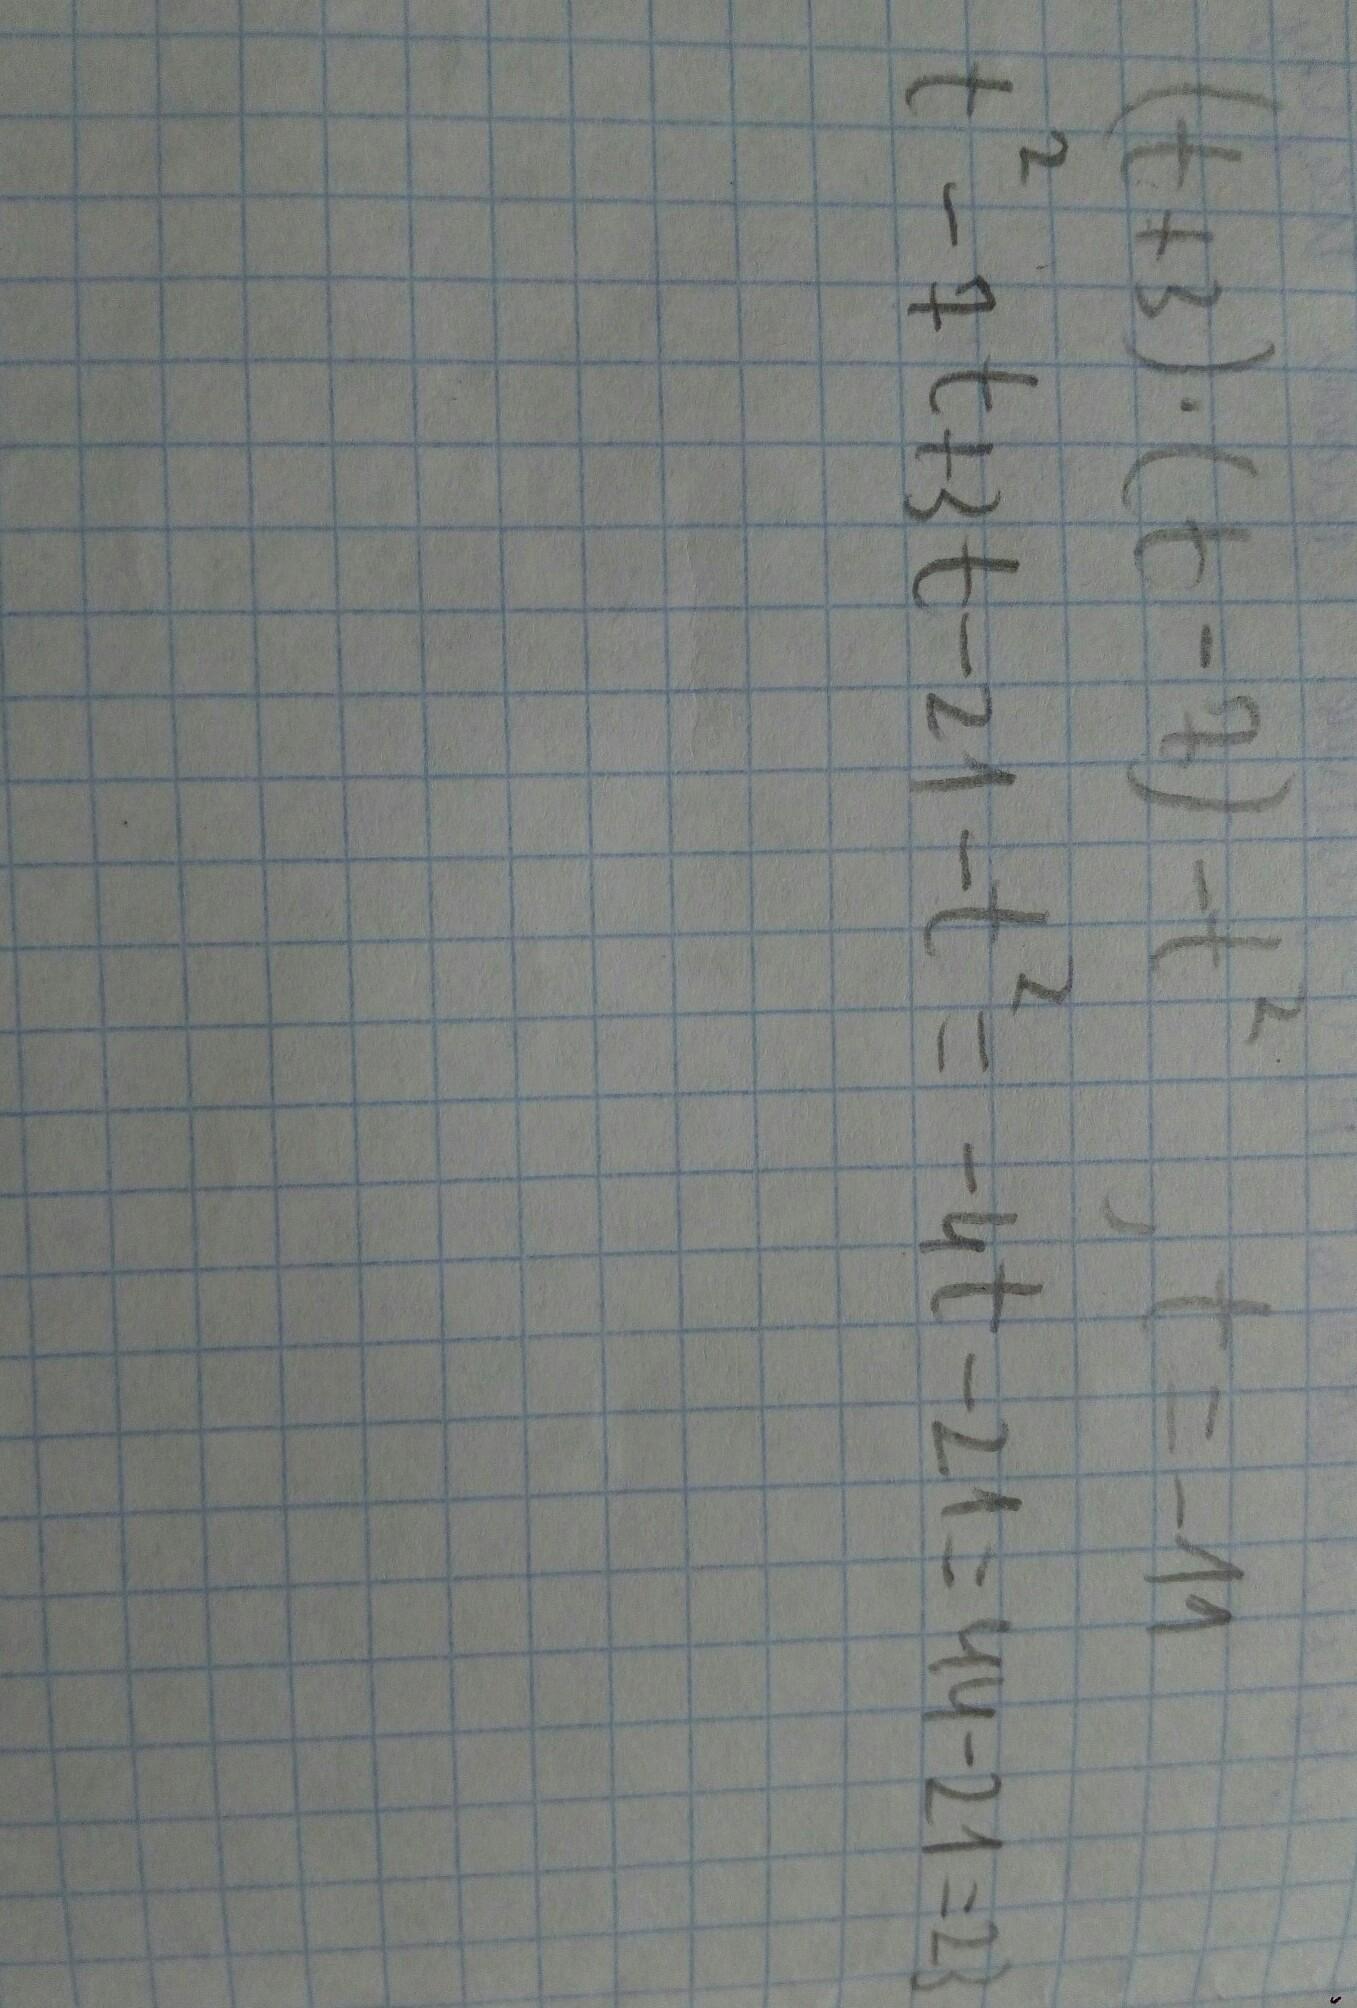 (t+3)·(t-7)-t² , t=-11
t²-7t+3t-21-t²= -4t-21=44-21=23